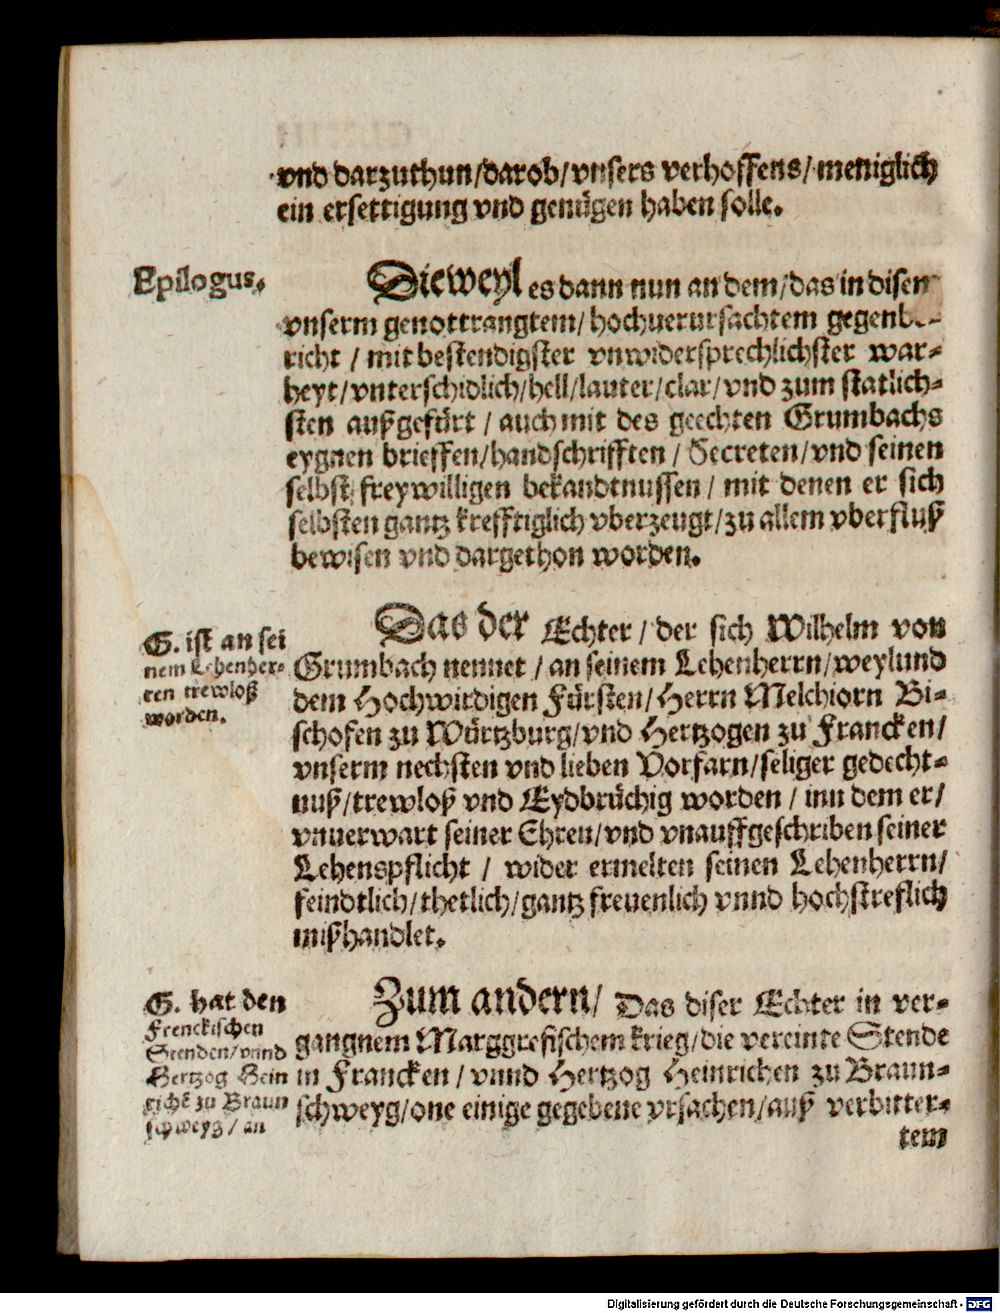 vnd darzuthun/darob/vnsers verhoffens/meniglich
ein ersettigung vnd genügen haben solle.
Epilogus.
Dieweyl es dann nun an dem/das in disem
vnserm genottrangtem/hochuerursachtem gegenbe-
richt / mit bestendigster vnwidersprechlichster war-
heyt/vnterschidlich/hell/lauter/clar/vnd zum statlich-
sten außgefürt / auch mit des geechten Grumbachs
eygnen brieffen/handschrifften / Secreten/vnd seinen
selbst freywilligen bekandtnussen / mit denen er sich
selbsten gantz krefftiglich vberzeugt/zu allem vberfluß
bewisen vnd dargethon worden.
G. ist an sei
nem Lehenher-
ren trewloß
worden.
Das der Echter / der sich Wilhelm von
Grumbach nennet / an seinem Lehenherrn/weylund
dem Hochwirdigen Fürsten/Herrn Melchiorn Bi-
schofen zu Würtzburg/vnd Hertzogen zu Francken/
vnserm nechsten vnd lieben Vorfarn/seliger gedecht-
nuß/trewloß vnd Eydbrüchig worden / inn dem er/
vnuerwart seiner Ehren/vnd vnauffgeschriben seiner
Lehenspflicht / wider ermelten seinen Lehenherrn/
feindtlich/thetlich/gantz freuenlich vnnd hochstreflich
mißhandlet.
G. hat den
Frenckischen
Stenden/vnnd
Hertzog Hein
richē zu Braun
schweyg / an
Zum andern/ Das diser Echter in ver-
gangnem Marggrefischem krieg/die vereinte Stende
in Francken / vnnd Hertzog Heinrichen zu Braun-
schweyg/one einige gegebene vrsachen/auß verbitter-
tem
Digitalisierung gefördert durch die Deutsche Forschungsgemeinschaft - DFG